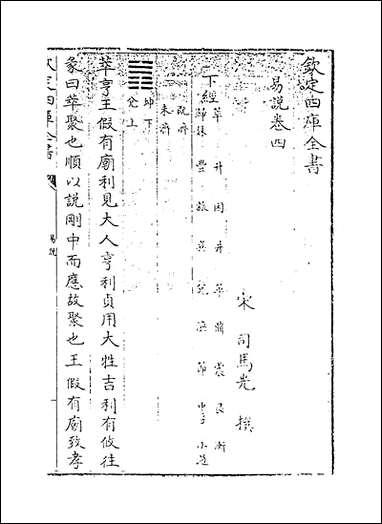 欽定四庫全書
易說卷四
宋 司馬光 撰
下經
萃 升 困 井 革 鼎 震 艮 漸
歸妹 豐 旅 巽 兌 渙 節 中孚 小過
既濟
未濟
坤下
兌上
萃亨王假有廟利見大人亨利貞用大牲吉利有攸往
彖曰萃聚也順以說剛中而應故聚也王假有廟致孝
欽定四庫全書
易說